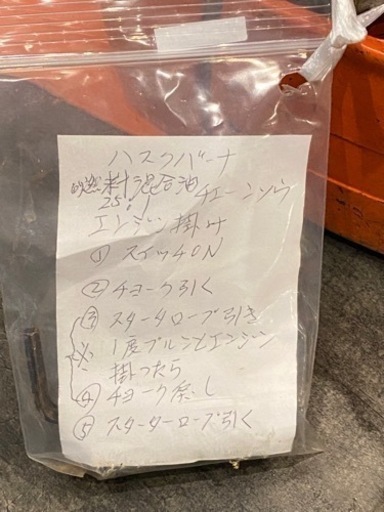 ハスクバーナ
燃料混合油 チェーンソウ
25:1
エンジン掛け
① スイッチON
② チョーク引く
③ スターターロープ引き
※ 1度ブルンとエンジン
掛ったら
④ チョーク戻し
⑤ スターターロープ引く